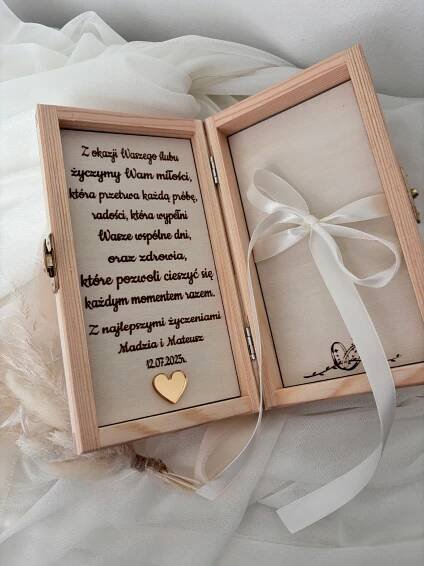 Z okazji Waszego ślubu
życzymy Wam miłości,
która przetrwa każdą próbę,
radości, która wypełni
Wasze wspólne dni,
oraz zdrowia,
które pozwoli cieszyć się
każdym momentem razem.
Z najlepszymi życzeniami
Madzia i Mateusz
12.07.2025r.